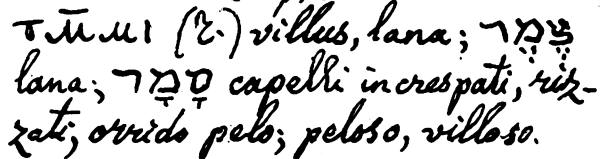 villus, lana; צֶמֶר
lana; סָמָר capelli increspati, riz-
zati; orrido pelo; peloso, villoso.